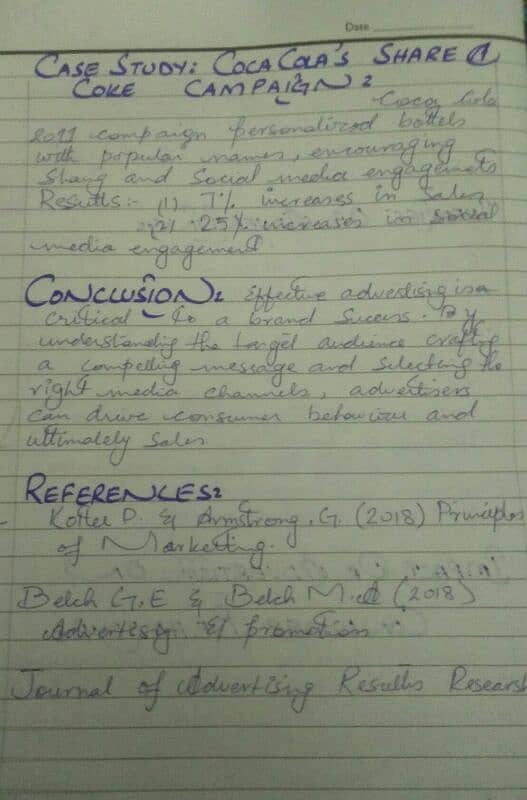 Date
CASE STUDY: COCA COLA'S SHARE A
COKE CAMPAIGN:
Coca Cola
2011 campaign personalized bottels
with popular names, encouraging
Sharing and Social media engagements
Results:- (1) 7% increases in Sales
(2) 25% increases in social
media engagement
CONCLUSION: Effective advertisig is a
critical to a brand Success. By
understanding the target audience crafting
a compelling message and Selecting the
right media channels, advertisers
can drive consumer behaviour and
ultimately Sales
REFERENCES:
Kotler P. & Armstrong, G. (2018) Principles
of Marketing.
Belch G.E & Belch M.A (2018)
Advertisig & promotion
Journal of Advertising Results Research